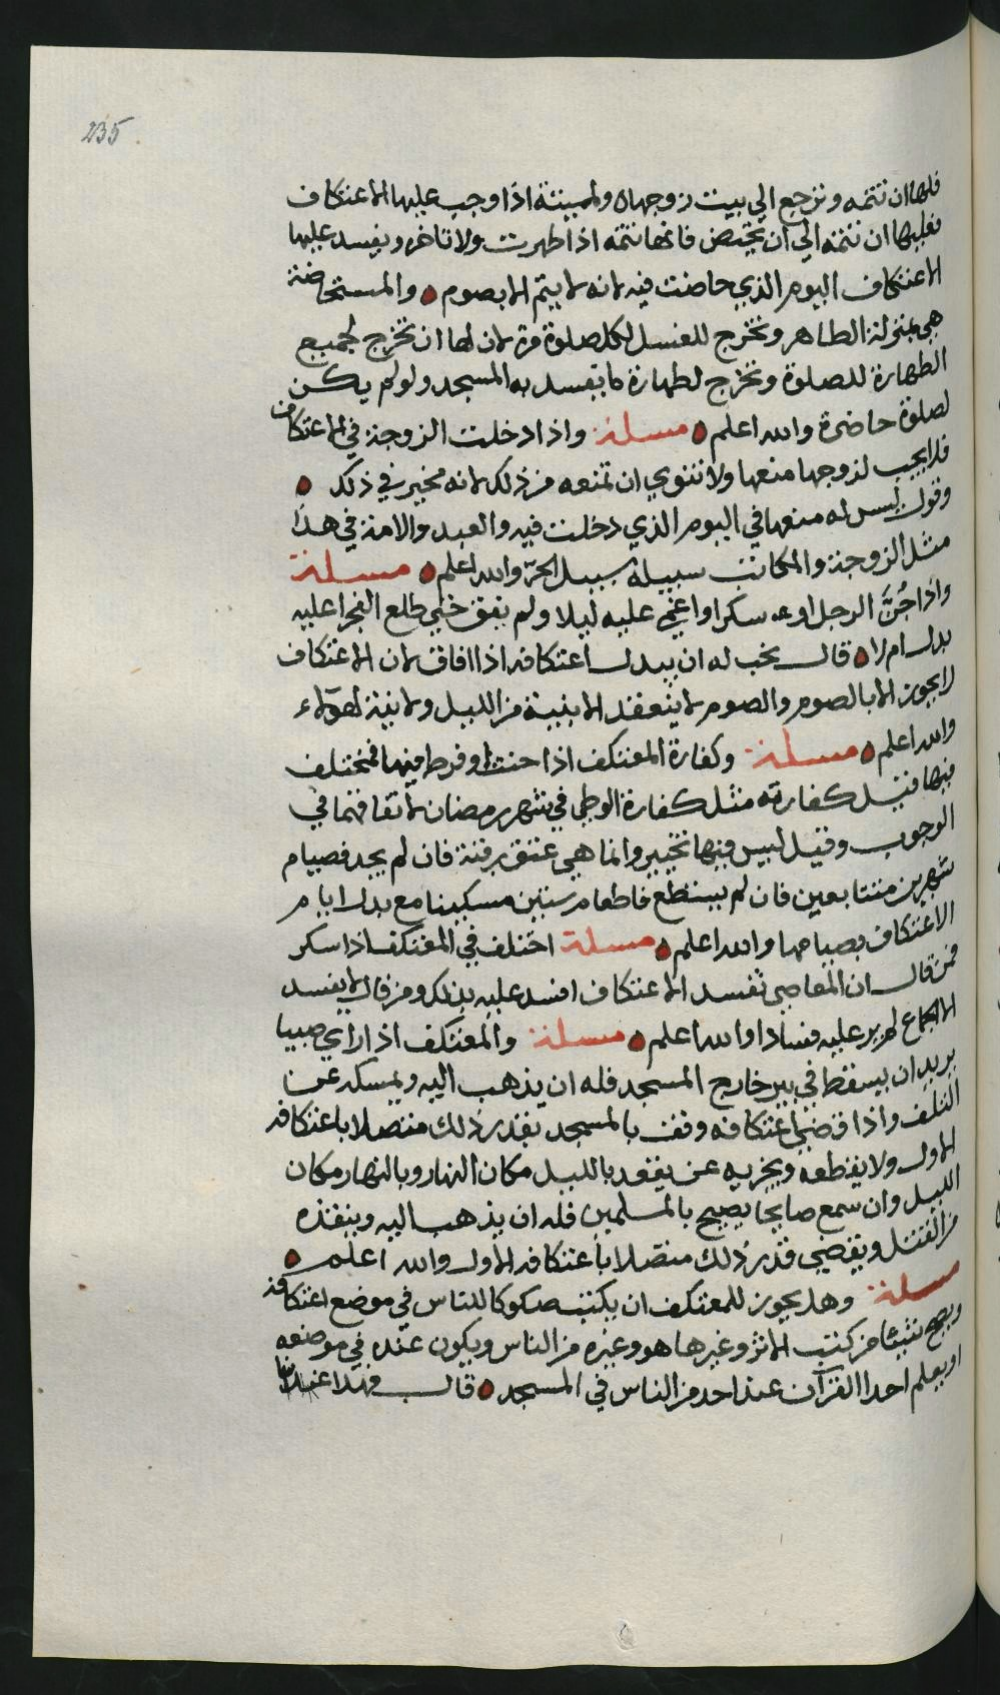 235
فلها ان تتمه وترجع الى بيت زوجها ه ولمبيتة اذا وجب عليها الاعتكاف
فعليها ان تتمه الى ان تحيض فانها تتمه اذا طهرت ولا تاخر ويفسد عليها
الاعتكاف اليوم الذي حاضت فيه لانه لا يتم الا بصوم ه والمستحاضة
هي بمنزلة الطاهر وتخرج للغسل لكل صلوة مرة لان لها ان تخرج لجميع
الطهارة للصلوة وتخرج لطهارة ما يفسد به المسجد ولو لم يكن
لصلوة حاضرة والله اعلم ه مسلة واذا دخلت الزوجة في الاعتكاف
فلا يجب لزوجها منعها ولا تنوي ان تمنعه من ذلك لانه مخير في ذلك ه
وقول ليس له منعها في اليوم الذي دخلت فيه والعبد والامة في هذا
مثل الزوجة والمكاتب سبيله سبيل الحرّ والله اعلم ه مسلة
واذا جُنَّ الرجل او سكر او اغمي عليه ليلا ولم يفق حتى طلع الفجر اعليه
بدل ام لا ه قال يجب له ان يبدل اعتكافه اذا افاق لان الاعتكاف
لا يجوز الا بالصوم والصوم لا ينعقد الا بنية من الليل ولا نية لهولاء
والله اعلم ه مسلة وكفارة المعتكف اذا حنث او فرط فيها فمختلف
فيها فقيل كفارته مثل كفارة الوطي في شهر رمضان لاتفاقهما في
الوجوب وقيل ليس فيها تخيير وانما هي عتق برقبة فان لم يجد فصيام
شهرين متتابعين فان لم يستطع فاطعام ستين مسكينا مع بدل ايام
الاعتكاف بصيامها والله اعلم ه مسلة اختلف في المعتكف اذا سكر
فمن قال ان المعاصي تفسد الاعتكاف افسد عليه بذلك ومن قال لا يفسد
الا الجماع لم ير عليه فسادا والله اعلم ه مسلة والمعتكف اذا راي صبيا
يريد ان يسقط في بير خارج المسجد فله ان يذهب اليه ويمسكه عن
التلف واذا قضى اعتكافه وقف بالمسجد بقدر ذلك متصلا باعتكافه
الاول ولا يقطعه ويجزيه عن يقعد بالليل مكان النهار وبالنهار مكان
الليل وان سمع صايحا يصيح بالمسلمين فله ان يذهب اليه وينقذه
من القتل ويقضي قدر ذلك متصلا باعتكافه الاول والله اعلم ه
مسلة وهل يجوز للمعتكف ان يكتب صكوكا للناس في موضع اعتكافه
ويصح شيئا من كتب الاثر وغيرها هو وغيره من الناس ويكون عنده في موضعه
او يعلم احدا القرآن عند احد من الناس في المسجد ه قال فهذا عندنا